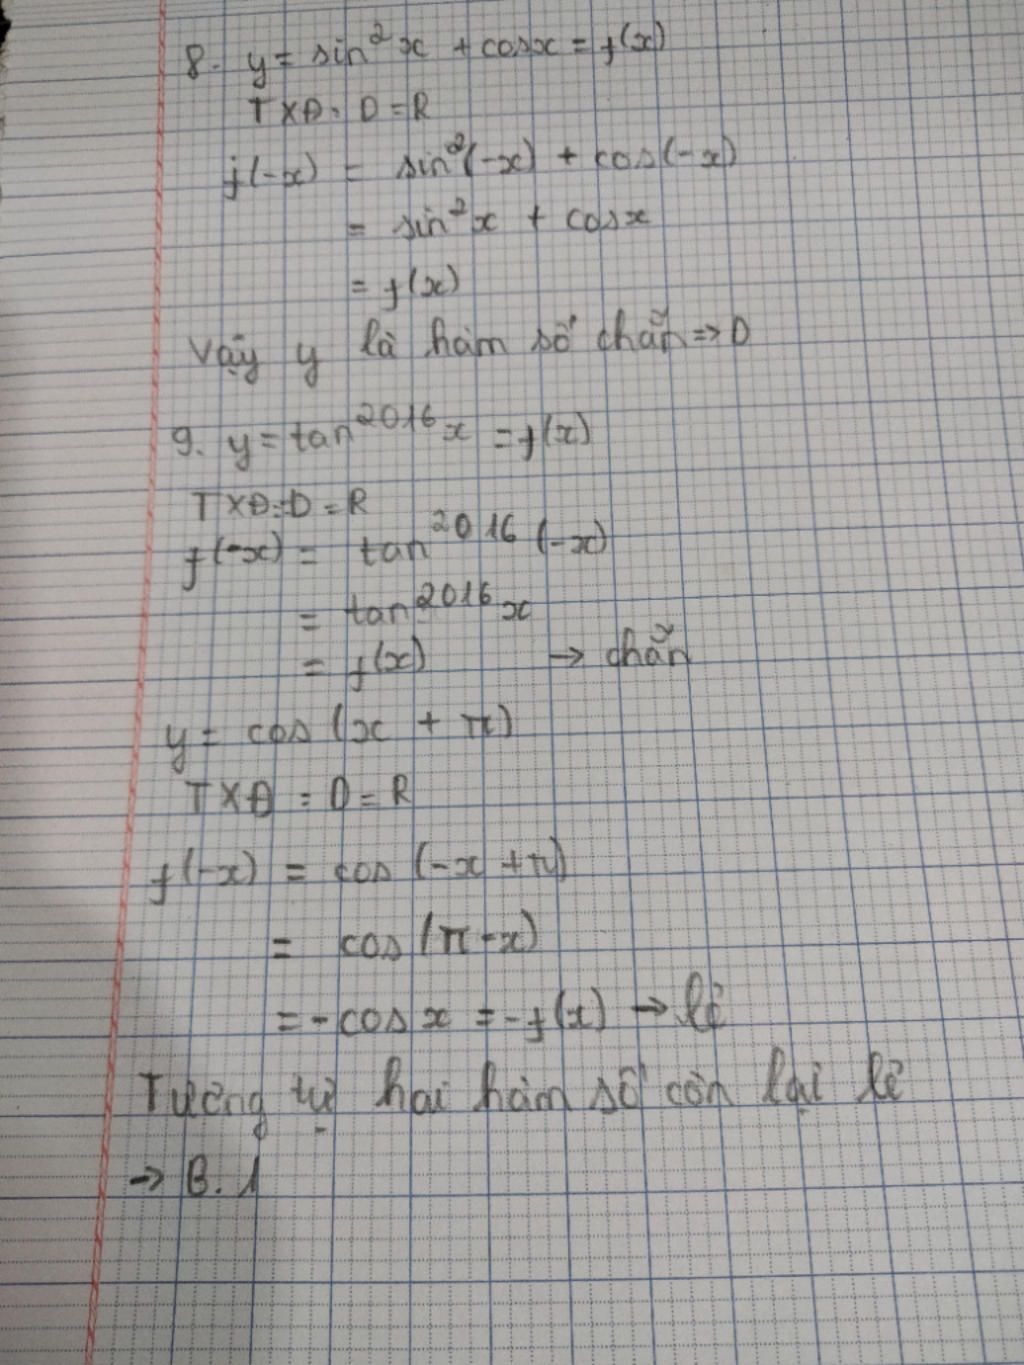 8. y = sin²x + cosx = f(x)
TXĐ: D = R
f(-x) = sin²(-x) + cos(-x)
= sin²x + cosx
= f(x)
Vậy y là hàm số chẵn => D
9. y = tan²⁰¹⁶x = f(x)
TXĐ: D = R
f(-x) = tan²⁰¹⁶(-x)
= tan²⁰¹⁶x
= f(x) → chẵn
y = cos(x + π)
TXĐ : D = R
f(-x) = cos(-x + π)
= cos(π - x)
= -cosx = -f(x) → lẻ
Tương tự hai hàm số còn lại lẻ
→ B. 1